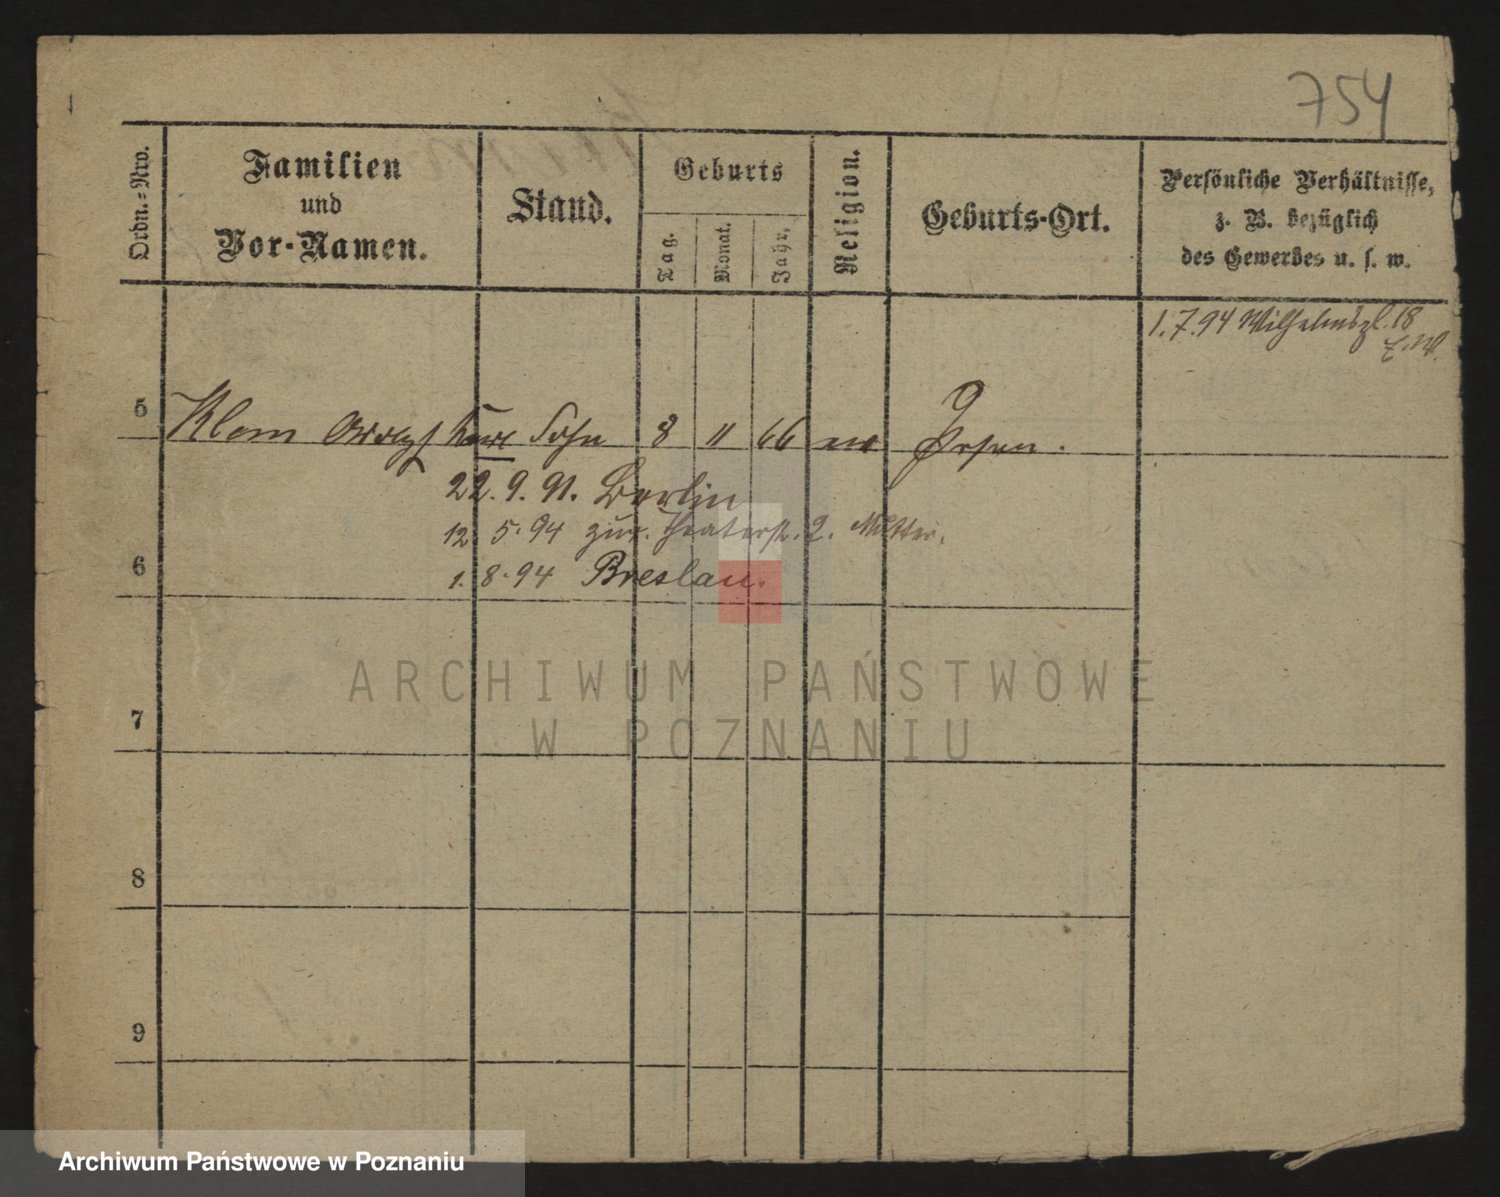 754
Ordn.-Nro.
Familien
und
Vor-Namen.
Stand.
Geburts
Tag.
Monat.
Jahr.
Religion.
Geburts-Ort.
Persönliche Verhältnisse,
z. B. bezüglich
des Gewerbes u. s. w.
1.7.94 Wilhelmspl. 18
5 Klom Adolph Karl Sohn 8 11 66 Posen.
22. 9. 91. Berlin
12 5. 94 zur. Theaterstr. 2. Mutter.
6
1. 8. 94 Breslau.
ARCHIWUM PAŃSTWOWE
W POZNANIU
7
8
9
Archiwum Państwowe w Poznaniu